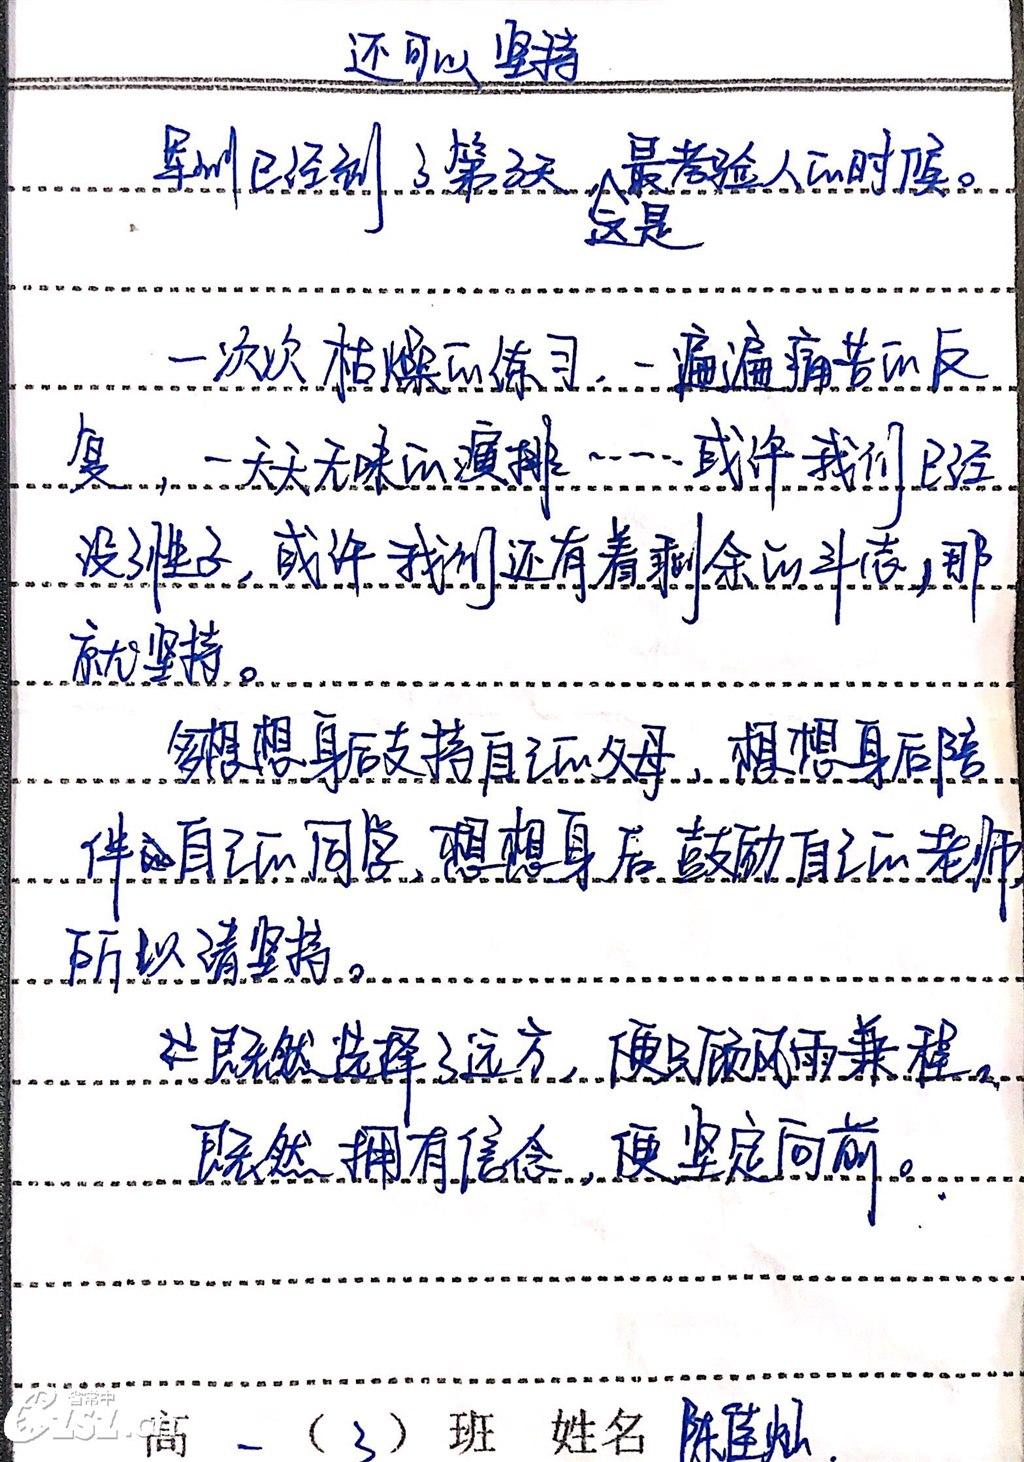 还可以坚持
军训已经到了第三天，这是最考验人的时候。
一次次枯燥的练习，一遍遍痛苦的反
复，一天天无味的演排……或许我们已经
没了性子，或许我们还有着剩余的斗志，那
就坚持。
多想想身后支持自己的父母，想想身后陪
伴自己的同学，想想身后鼓励自己的老师，
所以请坚持。
既然选择了远方，便只顾风雨兼程。
既然拥有信念，便坚定向前。
省常中
高一（3）班 姓名 陈佳灿